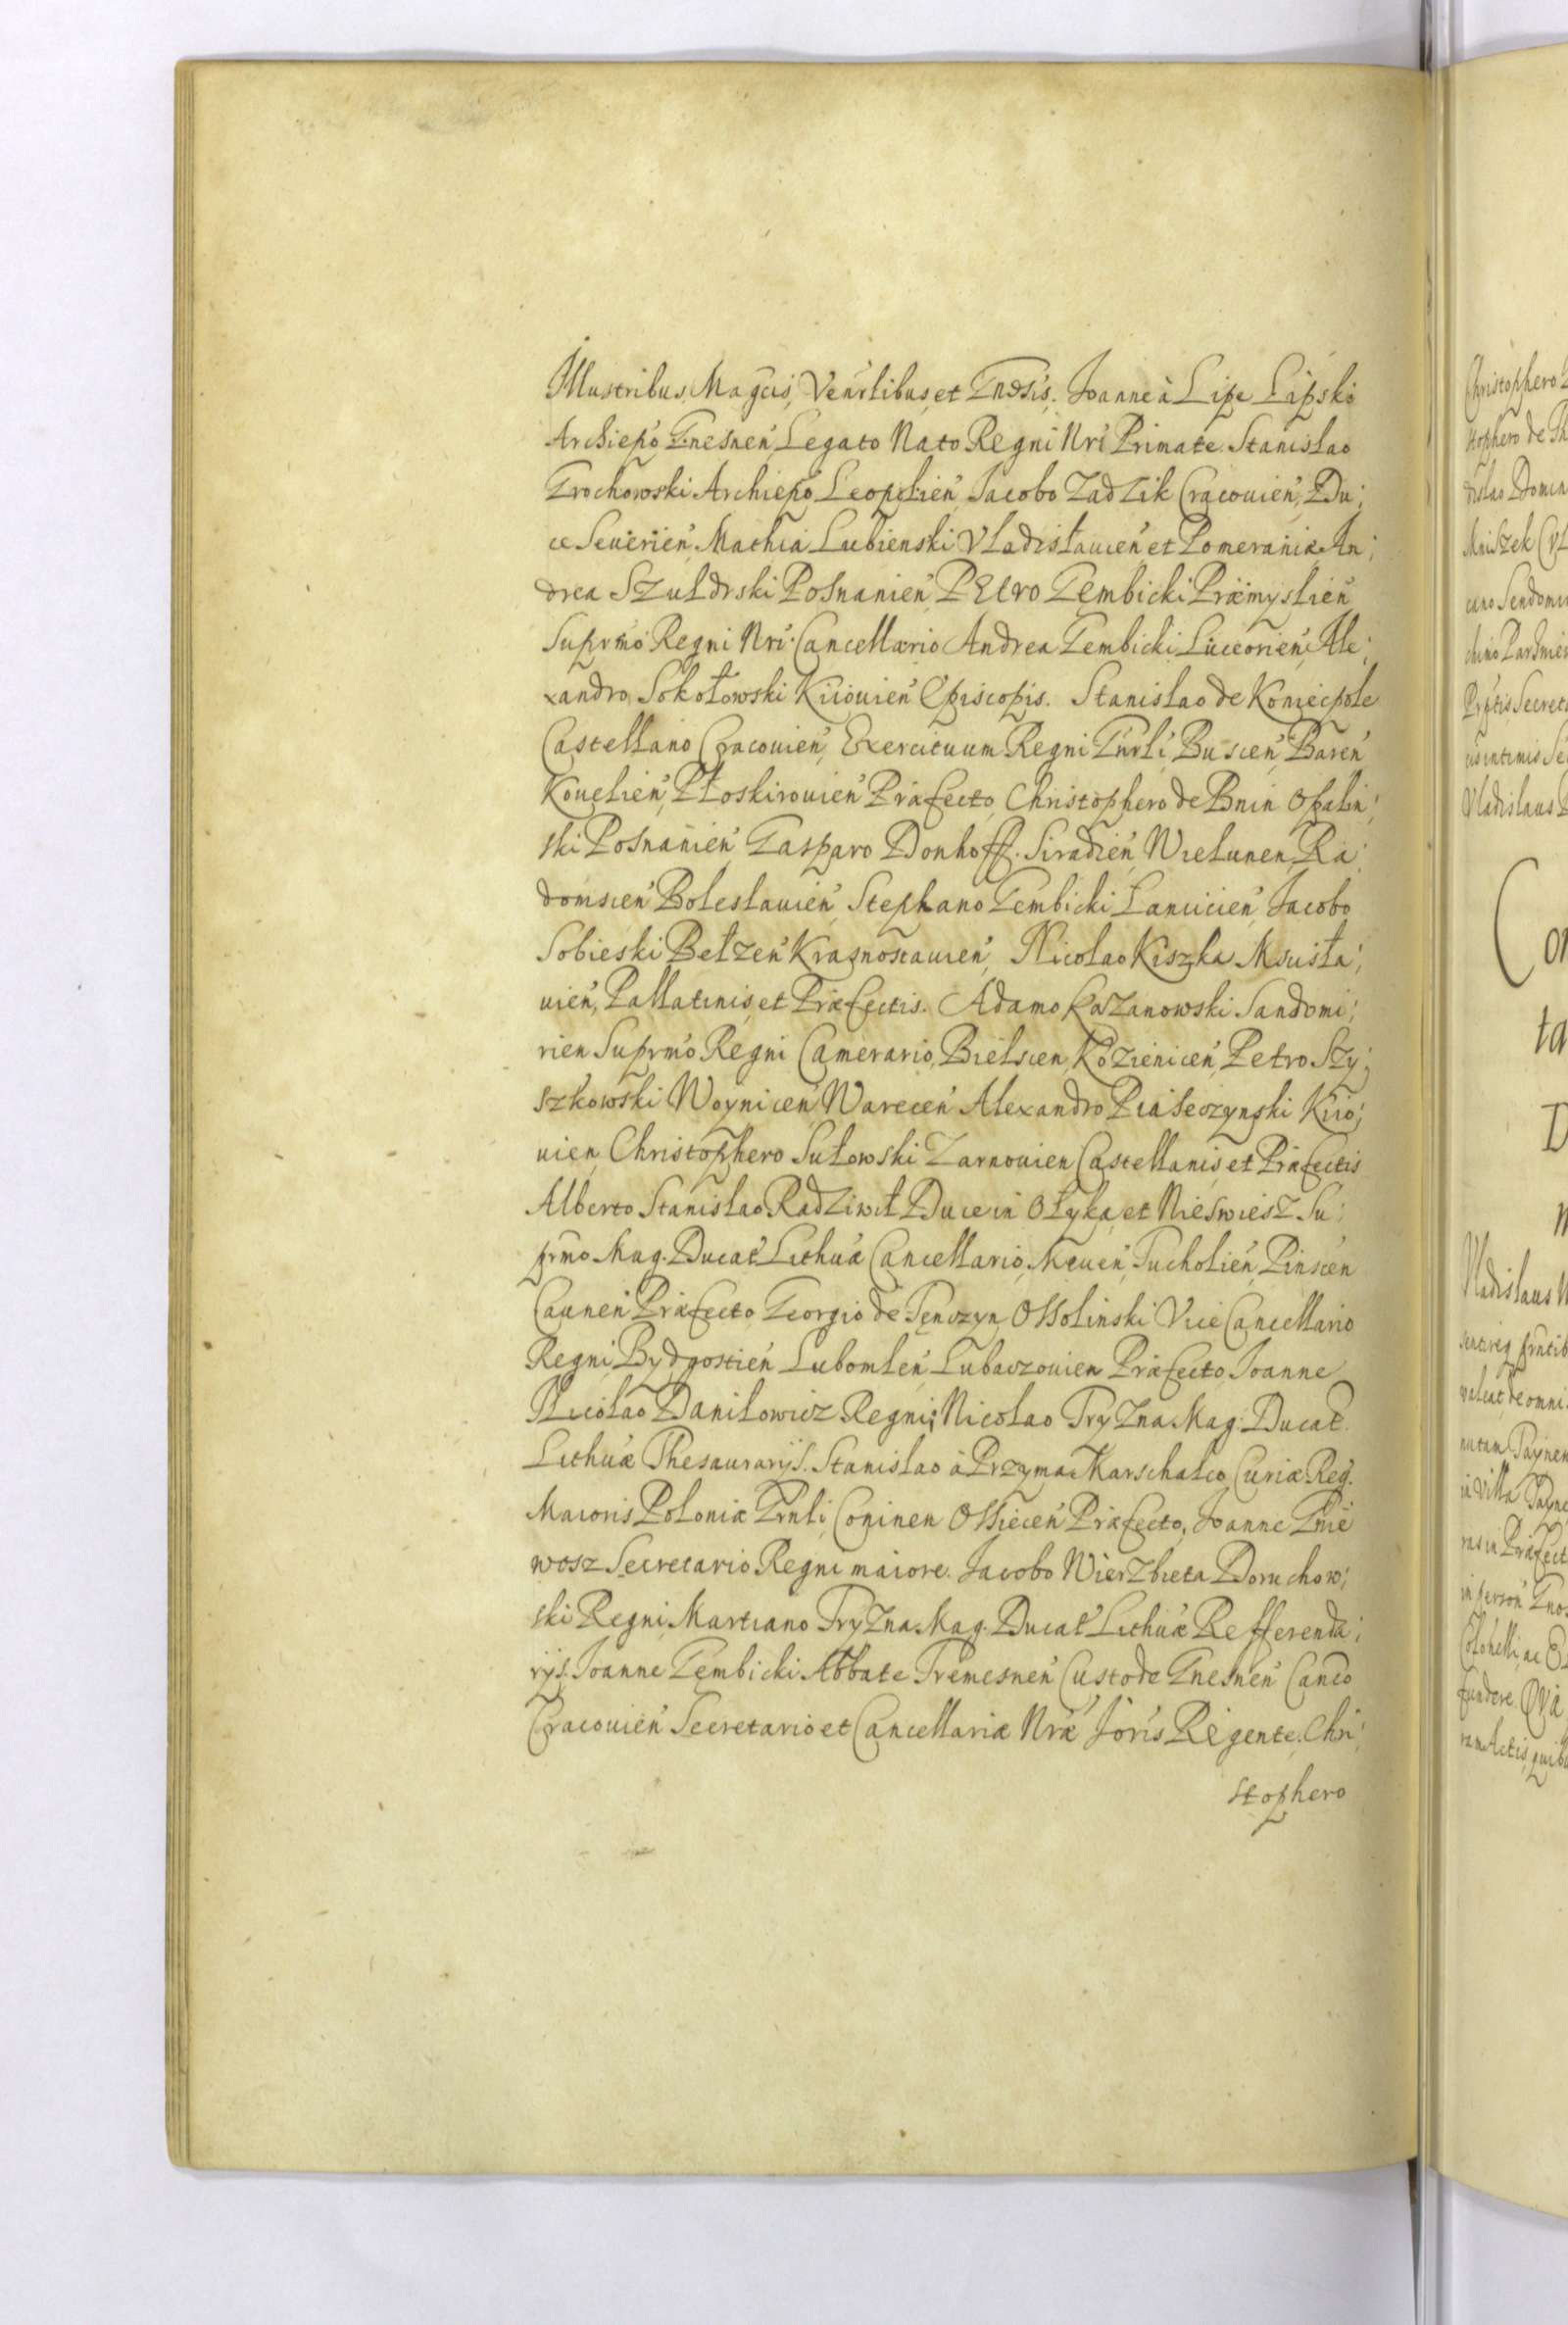 Illustribus, Magcis, Venrlibus, et Gnosis. Joanne à Lipe Lipski
Archiepo Gnesnen Legato Nato Regni Nri Primate. Stanislao
Grochowski Archiepo Leopolien Jacobo Zadzik Cracouien, Du;
ce Seuerien Mathia Lubienski Vladislauien et Pomeraniæ An;
drea Szułdrski Posnanien PEtro Gembicki Præmyslien
Suprmo Regni Nri Cancellario Andrea Gembicki Luceorien, Ale;
xandro Sokołowski Kiiouien Episcopis. Stanislao de Koniecpole
Castellano Cracouien, Exercituum Regni Gnrli, Buscen, Baren
Kouelien, Płoskirouien Præfecto, Christophero de Bnin Opalin;
ski Posnanien Gasparo Donhoff. Siradien, Wielunen, Ra;
domscen Boleslauien, Stephano Gembicki Lancicien Jacobo
Sobieski Bełzen Krasnostauien, Nicolao Kiszka Mscisła;
uien, Pallatinis, et Præfectis. Adamo Kazanowski Sandomi;
rien Suprmo Regni Camerario, Bielscen, Kozienicen, Petro Szy;
szkowski Woynicen Warecen Alexandro Piaseczynski Kiio;
uien, Christophero Sułowski Zarnouien Castellanis, et Præfectis
Alberto Stanislao Radziwił Duce in Ołyka, et Nieswiesz Su;
prmo Mag. Ducat. Lithuæ Cancellario, Meuen, Tucholien, Pinscen
Caunen Præfecto, Georgio de Tęnczyn Ossolinski Vice Cancellario
Regni, Bydgostien Lubomlen, Lubaczouien Præfecto, Joanne
Nicolao Daniłowicz Regni; Nicolao Tryzna Mag. Ducat.
Lithuæ Thesaurarijs. Stanislao à Przyma Marschalco Curiæ Reg.
Maioris Poloniæ Gnrli, Coninen Ossiecen Præfecto, Joanne Gnie
wosz Secretario Regni maiore. Jacobo Wierzbieta Doruchow;
ski Regni, Martiano Tryzna Mag. Ducat Lithuæ Refferenda;
rijs. Joanne Gembicki Abbate Tremesnen Custode Gnesnen Canco
Cracouien Secretario et Cancellariæ Nræ Joris Regente. Chri;
stophero